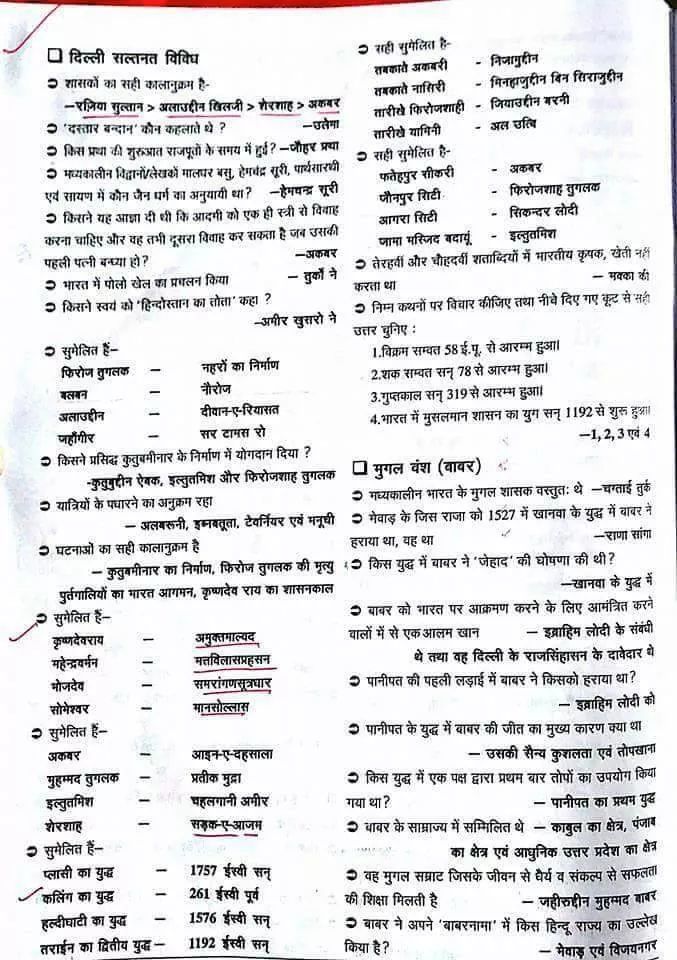 ❑ दिल्ली सल्तनत विविध
➲ शासकों का सही कालानुक्रम है-
–रज़िया सुल्तान > अलाउद्दीन खिलजी > शेरशाह > अकबर
➲ 'दस्तार बन्दान' कौन कहलाते थे ? –उलेमा
➲ किस प्रथा की शुरुआत राजपूतों के समय में हुई? –जौहर प्रथा
➲ मध्यकालीन विद्वानों/लेखकों मालधर बसु, हेमचंद्र सूरी, पार्थसारथी
एवं सायण में कौन जैन धर्म का अनुयायी था? –हेमचन्द्र सूरी
➲ किसने यह आज्ञा दी थी कि आदमी को एक ही स्त्री से विवाह
करना चाहिए और वह तभी दूसरा विवाह कर सकता है जब उसकी
पहली पत्नी बन्ध्या हो? –अकबर
➲ भारत में पोलो खेल का प्रचलन किया – तुर्कों ने
➲ किसने स्वयं को 'हिन्दोस्तान का तोता' कहा ?
–अमीर खुसरो ने
➲ सुमेलित हैं–
फिरोज तुगलक – नहरों का निर्माण
बलबन – नौरोज
अलाउद्दीन – दीवान-ए-रियासत
जहाँगीर – सर टामस रो
➲ किसने प्रसिद्ध कुतुबमीनार के निर्माण में योगदान दिया ?
-कुतुबुद्दीन ऐबक, इल्तुतमिश और फिरोजशाह तुगलक
➲ यात्रियों के पधारने का अनुक्रम रहा
– अलबरूनी, इब्नबतूता, टेवर्नियर एवं मनूची
➲ घटनाओं का सही कालानुक्रम है
– कुतुबमीनार का निर्माण, फिरोज तुगलक की मृत्यु
पुर्तगालियों का भारत आगमन, कृष्णदेव राय का शासनकाल
➲ सुमेलित हैं–
कृष्णदेवराय – अमुक्तमाल्यद
महेन्द्रवर्मन – मत्तविलासप्रहसन
भोजदेव – समरांगणसूत्रधार
सोमेश्वर – मानसोल्लास
➲ सुमेलित हैं–
अकबर – आइन-ए-दहसाला
मुहम्मद तुगलक – प्रतीक मुद्रा
इल्तुतमिश – चहलगानी अमीर
शेरशाह – सड़क-ए-आजम
➲ सुमेलित हैं–
प्लासी का युद्ध – 1757 ईस्वी सन्
कलिंग का युद्ध – 261 ईस्वी पूर्व
हल्दीघाटी का युद्ध – 1576 ईस्वी सन्
तराईन का द्वितीय युद्ध – 1192 ईस्वी सन्
➲ सही सुमेलित है-
तबकाते अकबरी - निजामुद्दीन
तबकाते नासिरी - मिनहाजुद्दीन बिन सिराजुद्दीन
तारीखे फिरोजशाही - जियाउद्दीन बरनी
तारीखे यामिनी - अल उत्बि
➲ सही सुमेलित है-
फतेहपुर सीकरी - अकबर
जौनपुर सिटी - फिरोजशाह तुगलक
आगरा सिटी - सिकन्दर लोदी
जामा मस्जिद बदायूं - इल्तुतमिश
➲ तेरहवीं और चौहदवीं शताब्दियों में भारतीय कृषक, खेती नहीं
करता था – मक्का की
➲ निम्न कथनों पर विचार कीजिए तथा नीचे दिए गए कूट से सही
उत्तर चुनिए :
1.विक्रम सम्वत 58 ई.पू. से आरम्भ हुआ।
2.शक सम्वत सन् 78 से आरम्भ हुआ।
3.गुप्तकाल सन् 319 से आरम्भ हुआ।
4.भारत में मुसलमान शासन का युग सन् 1192 से शुरू हुआ।
–1, 2, 3 एवं 4
❑ मुगल वंश (बाबर)
➲ मध्यकालीन भारत के मुगल शासक वस्तुतः थे –चग्ताई तुर्क
➲ मेवाड़ के जिस राजा को 1527 में खानवा के युद्ध में बाबर ने
हराया था, वह था –राणा सांगा
➲ किस युद्ध में बाबर ने 'जेहाद' की घोषणा की थी ?
–खानवा के युद्ध में
➲ बाबर को भारत पर आक्रमण करने के लिए आमंत्रित करने
वालों में से एक आलम खान – इब्राहिम लोदी के संबंधी
थे तथा वह दिल्ली के राजसिंहासन के दावेदार थे
➲ पानीपत की पहली लड़ाई में बाबर ने किसको हराया था?
– इब्राहिम लोदी को
➲ पानीपत के युद्ध में बाबर की जीत का मुख्य कारण क्या था
– उसकी सैन्य कुशलता एवं तोपखाना
➲ किस युद्ध में एक पक्ष द्वारा प्रथम बार तोपों का उपयोग किया
गया था? – पानीपत का प्रथम युद्ध
➲ बाबर के साम्राज्य में सम्मिलित थे – काबुल का क्षेत्र, पंजाब
का क्षेत्र एवं आधुनिक उत्तर प्रदेश का क्षेत्र
➲ वह मुगल सम्राट जिसके जीवन से धैर्य व संकल्प से सफलता
की शिक्षा मिलती है – जहीरुद्दीन मुहम्मद बाबर
➲ बाबर ने अपने 'बाबरनामा' में किस हिन्दू राज्य का उल्लेख
किया है? – मेवाड़ एवं विजयनगर